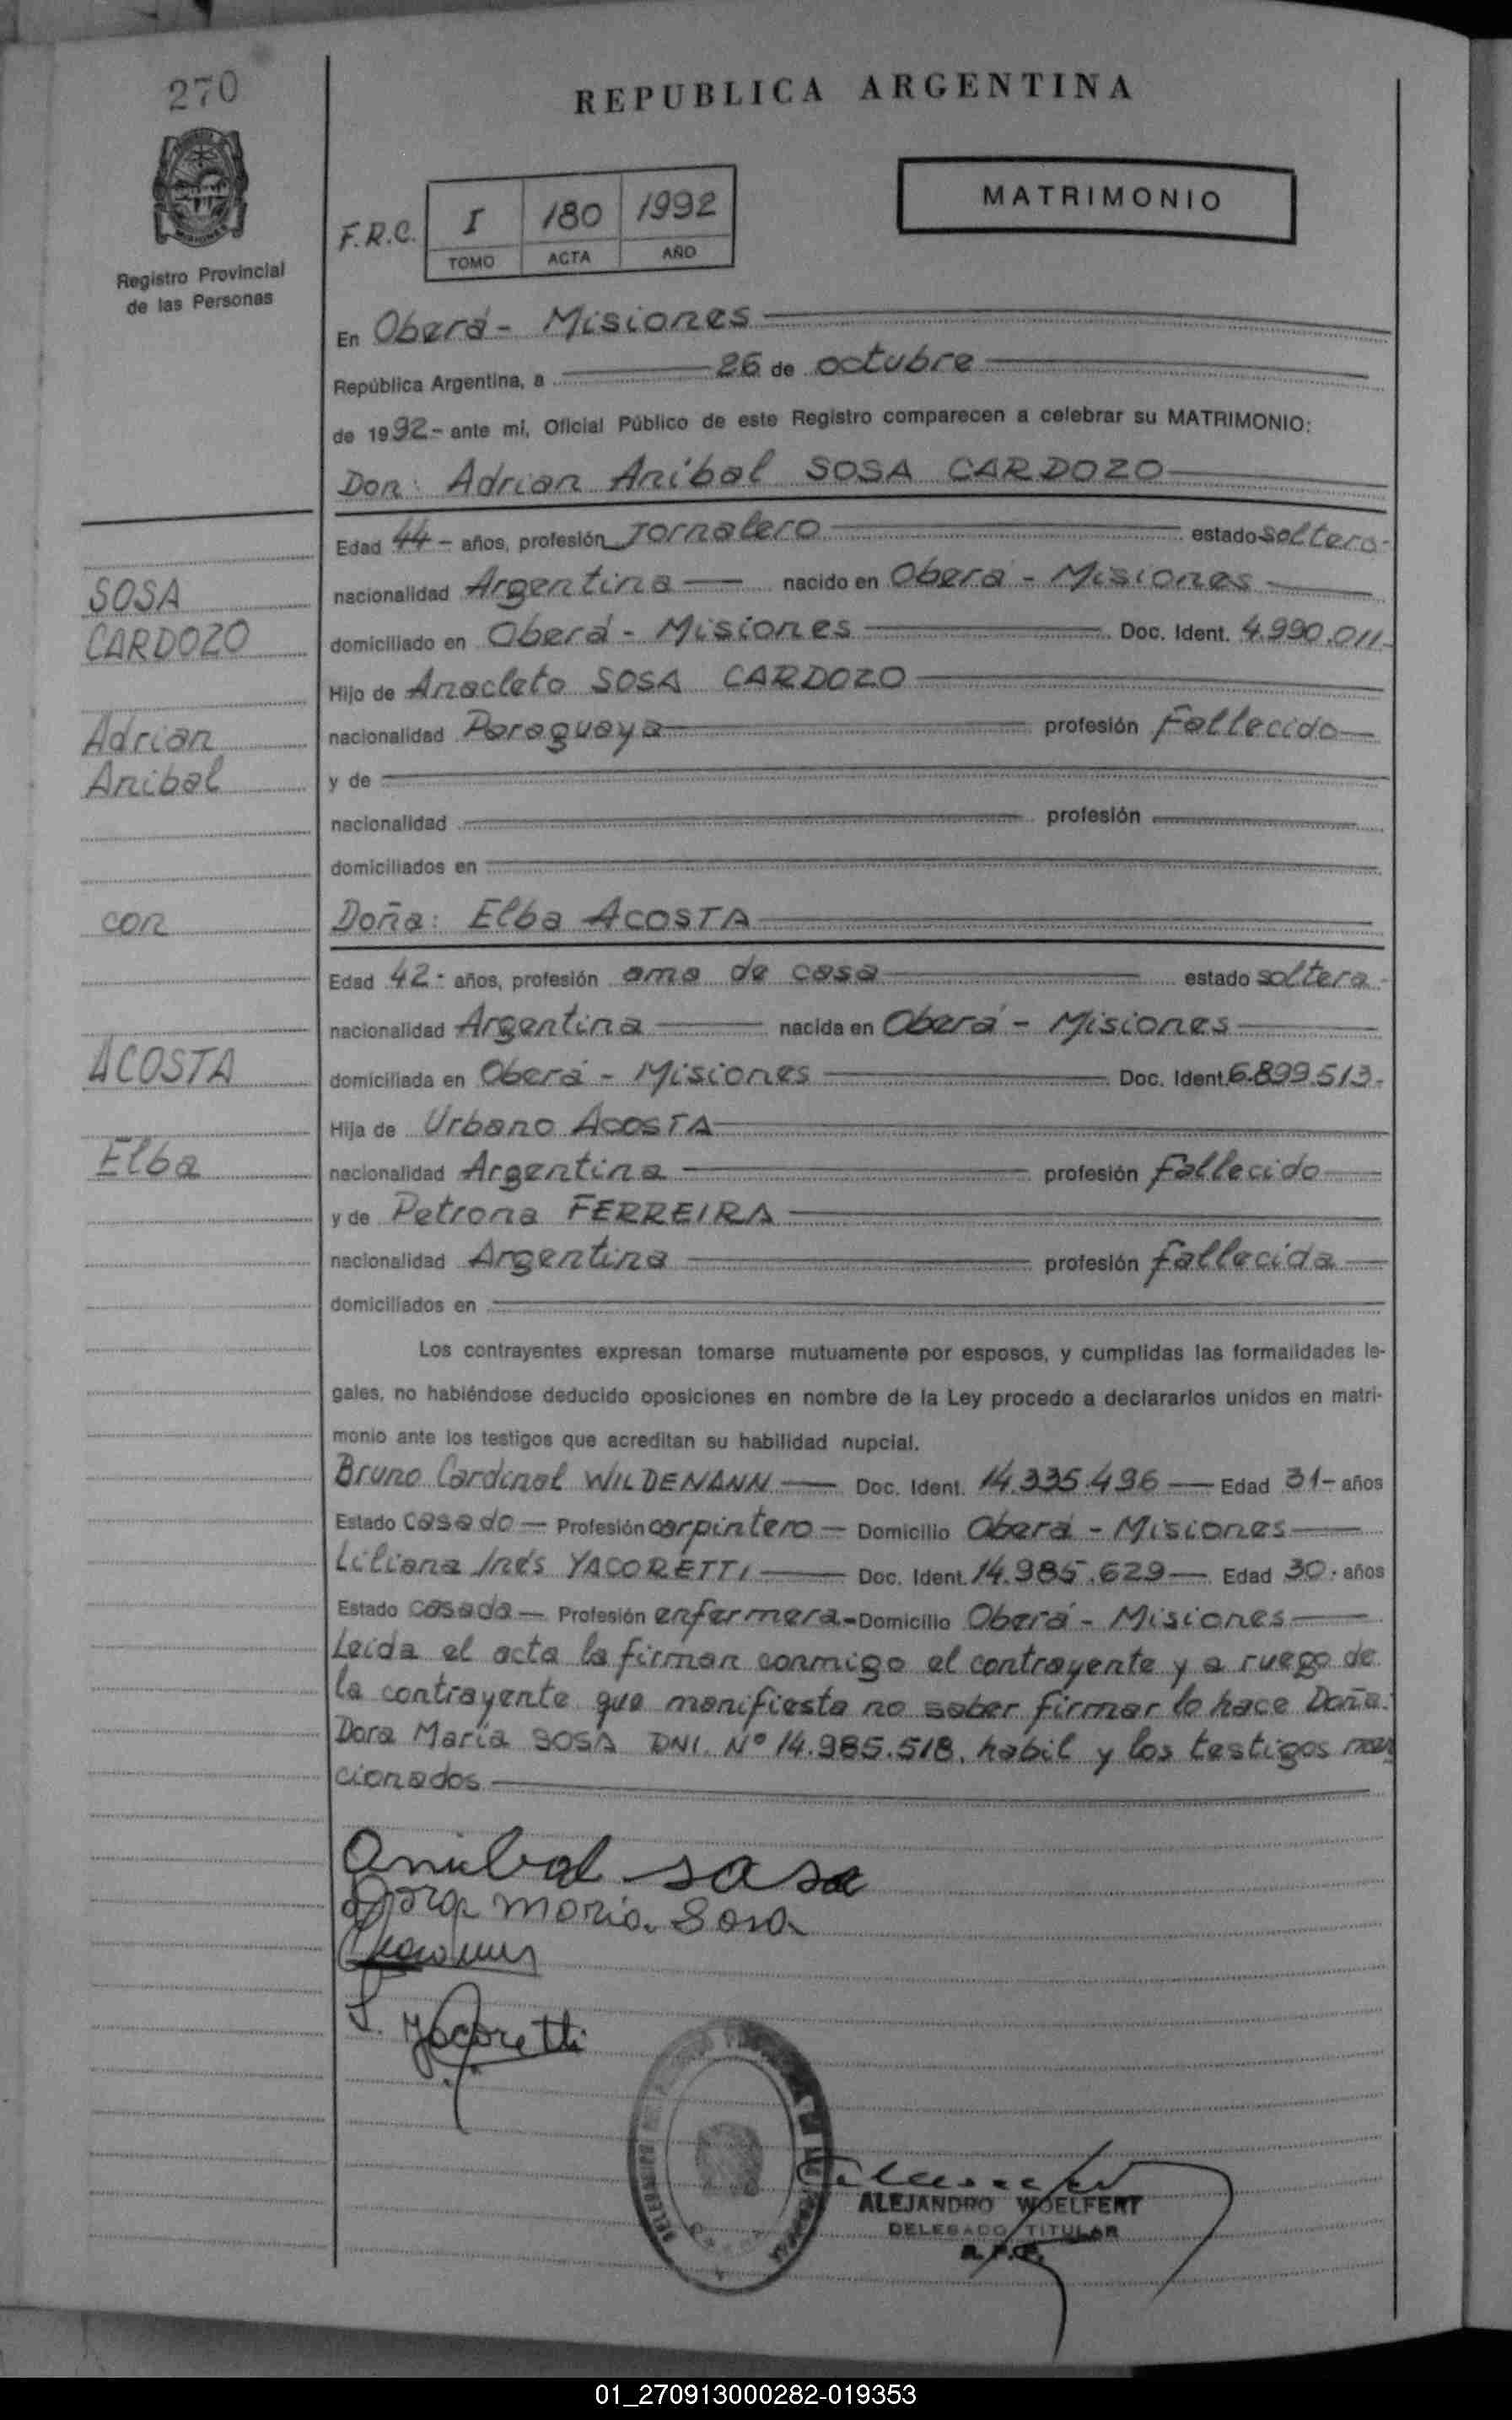 270
REPUBLICA ARGENTINA
MATRIMONIO
F.R.C. I 180 1992
TOMO ACTA AÑO
Registro Provincial
de las Personas
En Oberá - Misiones
República Argentina, a 26 de octubre
de 1992 - ante mí, Oficial Público de este Registro comparecen a celebrar su MATRIMONIO:
Don: Adrian Anibal SOSA CARDOZO
Edad 44 - años, profesión Jornalero estado soltero -
nacionalidad Argentina nacido en Oberá - Misiones
domiciliado en Oberá - Misiones Doc. Ident. 4.990.011 -
Hijo de Anacleto SOSA CARDOZO
nacionalidad Paraguaya profesión Fallecido
y de
nacionalidad profesión
domiciliados en
Doña: Elba ACOSTA
Edad 42 - años, profesión ama de casa estado soltera -
nacionalidad Argentina nacida en Oberá - Misiones
domiciliada en Oberá - Misiones Doc. Ident. 6.899.513 -
Hija de Urbano ACOSTA
nacionalidad Argentina profesión fallecido
y de Petrona FERREIRA
nacionalidad Argentina profesión fallecida
domiciliados en
SOSA
CARDOZO
Adrian
Anibal
con
ACOSTA
Elba
Los contrayentes expresan tomarse mutuamente por esposos, y cumplidas las formalidades le-
gales, no habiéndose deducido oposiciones en nombre de la Ley procedo a declararlos unidos en matri-
monio ante los testigos que acreditan su habilidad nupcial.
Bruno Cardinal WILDENANN Doc. Ident. 14.335.496 Edad 31 - años
Estado casado Profesión carpintero Domicilio Oberá - Misiones
Liliana Inés YACORETTI Doc. Ident. 14.985.629 Edad 30 - años
Estado casada Profesión enfermera - Domicilio Oberá - Misiones
Leída el acta la firman conmigo el contrayente y a ruego de
la contrayente que manifiesta no saber firmar lo hace Doña
Dora María SOSA DNI. Nº 14.985.518, habil y los testigos men
cionados
Anibal sosa
Dora Maria Sosa
L. Yacoretti
ALEJANDRO WOELFERT
DELEGADO TITULAR
R.P.P.
01_270913000282-019353